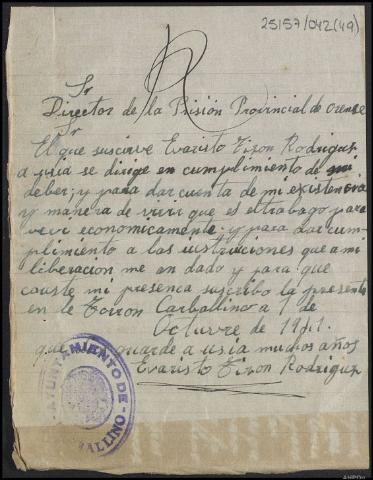 25157/042(49)
Sr
Director de la Prisión Provincial de Orense
Sr
El que suscirve Evaristo Tizon Rodriguez
a usia se dirige en cumplimiento de mi
deber; y para dar cuenta de mi existencia
y manera de vivir que es el trabago para
vivir economicamente; y para dar cum-
plimiento a las instruciones que a mi
liberacion me an dado y para que
conste mi presenca suscribo la presente
en le Torron Carballino a 1 de
Octurve de 1941.
que guarde a usia muchos años
Evaristo Tizon Rodriguez
AYUNTAMIENTO DE
CARBALLINO
AHPOU